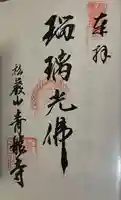 奉拝
瑠璃光佛
松巖山青龍寺